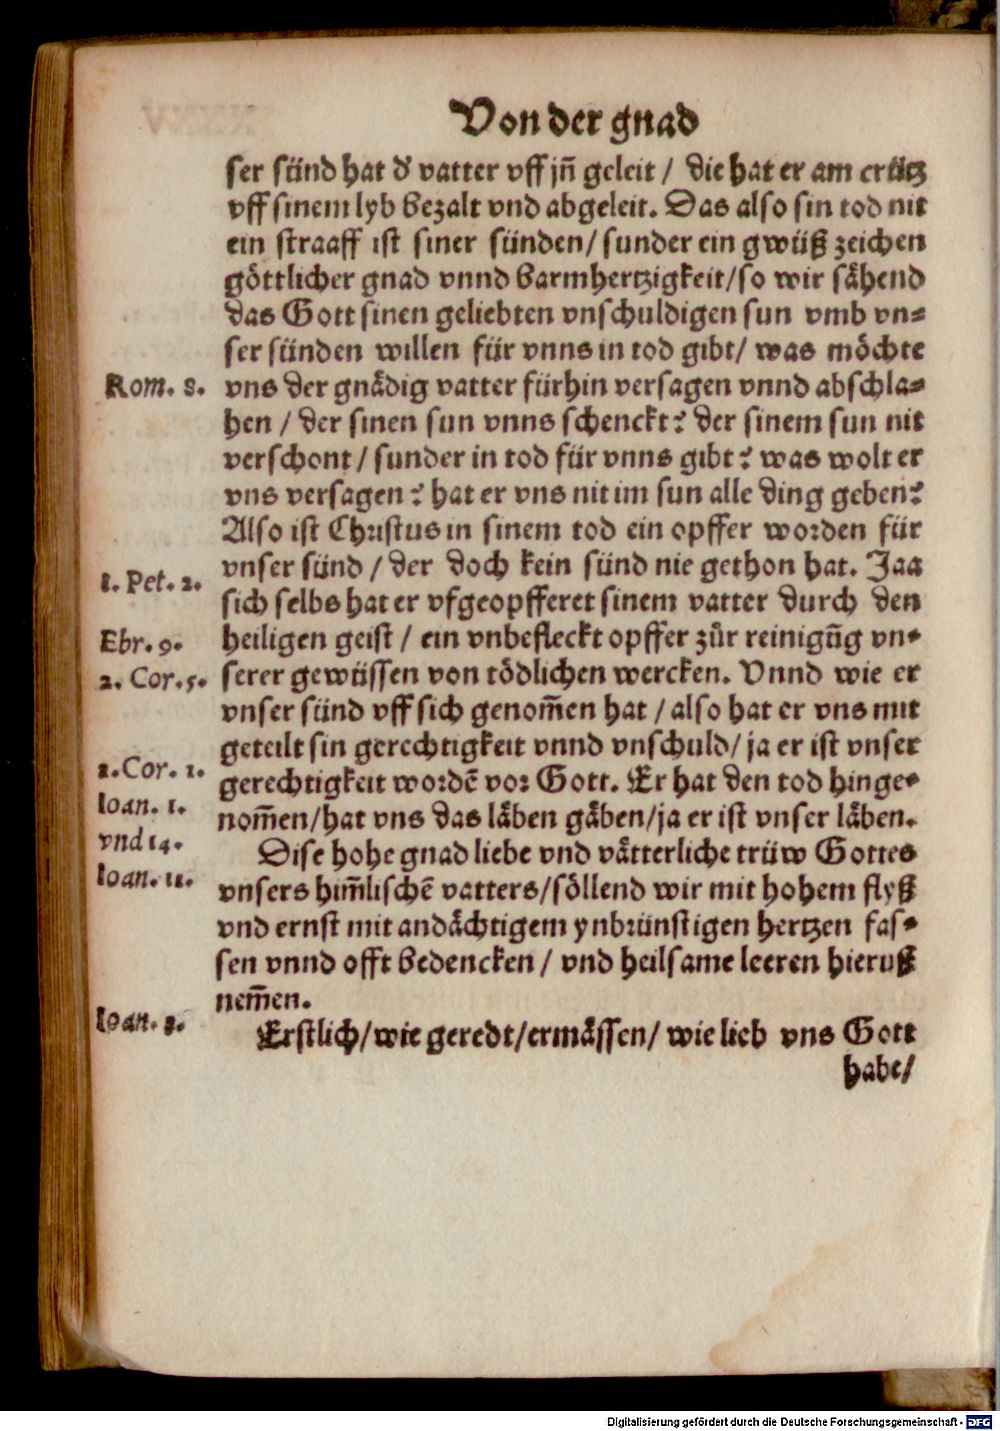 Von der gnad
ser sünd hat d' vatter vff jn̄ geleit / die hat er am crütz
vff sinem lyb bezalt vnd abgeleit. Das also sin tod nit
ein straaff ist siner sünden/ sunder ein gwüß zeichen
göttlicher gnad vnnd barmhertzigkeit/so wir sähend
das Gott sinen geliebten vnschuldigen sun vmb vn⸗
ser sünden willen für vnns in tod gibt/ was möchte
Rom. 8. vns der gnädig vatter fürhin versagen vnnd abschla⸗
hen / der sinen sun vnns schenckt? der sinem sun nit
verschont / sunder in tod für vnns gibt? was wolt er
vns versagen? hat er vns nit im sun alle ding geben?
Also ist Christus in sinem tod ein opffer worden für
1. Pet. 2. vnser sünd / der doch kein sünd nie gethon hat. Jaa
sich selbs hat er vfgeopfferet sinem vatter durch den
Ebr. 9. heiligen geist / ein vnbefleckt opffer zůr reinigūg vn⸗
2. Cor. 5. serer gewüssen von tödlichen wercken. Vnnd wie er
vnser sünd vff sich genom̄en hat / also hat er vns mit
geteilt sin gerechtigkeit vnnd vnschuld/ ja er ist vnser
1. Cor. 1. gerechtigkeit wordē vor Gott. Er hat den tod hinge⸗
Ioan. 1. nom̄en/hat vns das läben gäben/ja er ist vnser läben.
vnd 14. Dise hohe gnad liebe vnd vätterliche trüw Gottes
Ioan. 11. vnsers him̄lischē vatters/söllend wir mit hohem flyß
vnd ernst mit andächtigem ynbrünstigen hertzen fas⸗
sen vnnd offt bedencken / vnd heilsame leeren hieruß
nem̄en.
Ioan. 3. Erstlich/wie geredt/ermässen/ wie lieb vns Gott
habe/
Digitalisierung gefördert durch die Deutsche Forschungsgemeinschaft - DFG